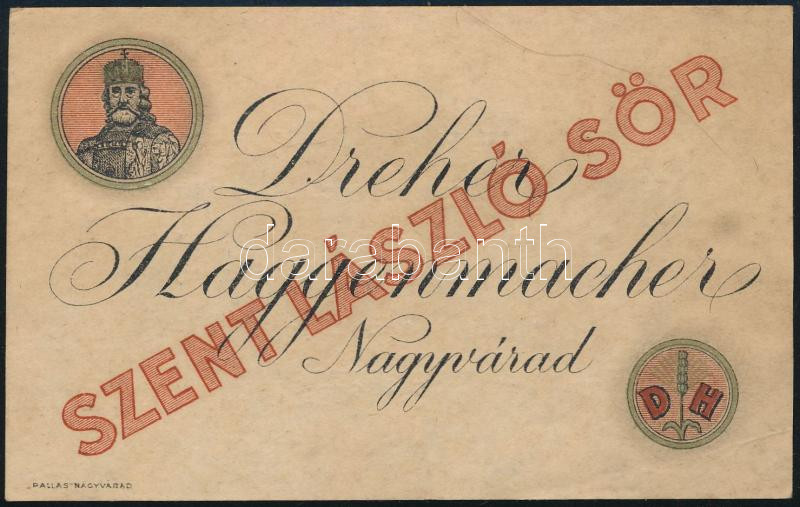 Dreher
Haggenmacher
Nagyvárad
SZENT LÁSZLÓ SÖR
D H
"PALLAS" NAGYVÁRAD
darabanth